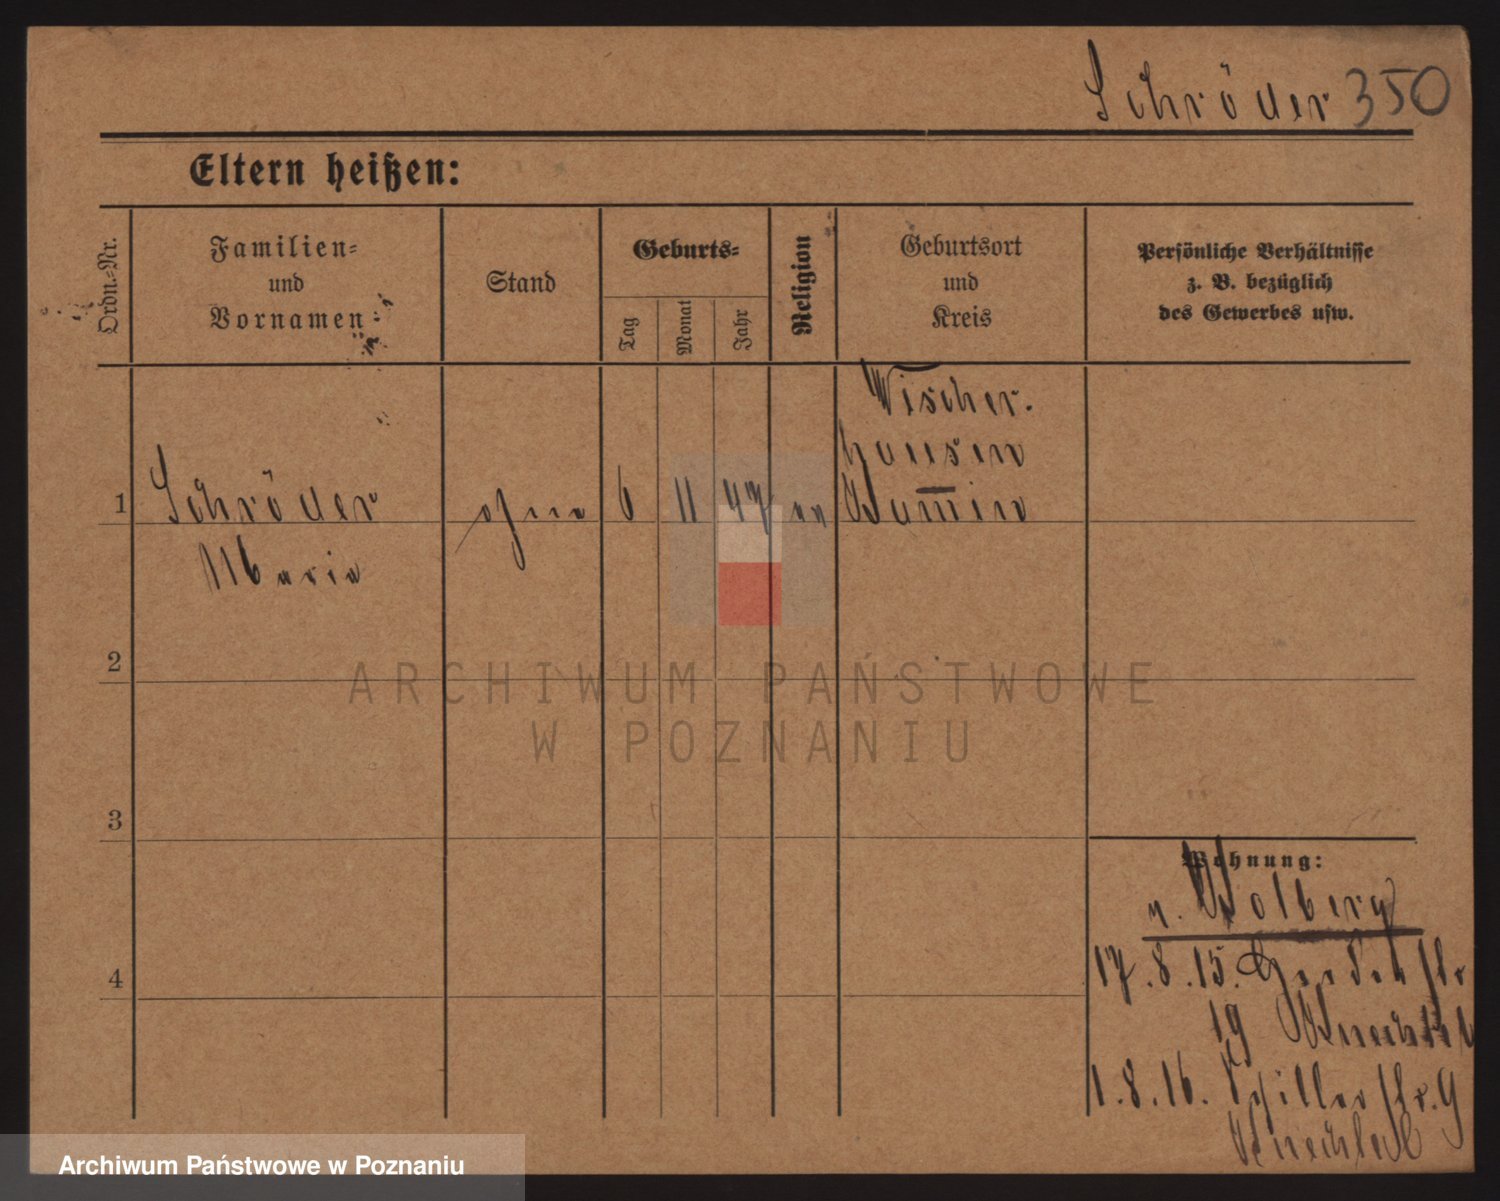 Schröder 350
Eltern heißen:
Ordn.-Nr.
Familien-
und
Vornamen
Stand
Geburts-
Tag
Monat
Jahr
Religion
Geburtsort
und
Kreis
Persönliche Verhältnisse
z. B. bezüglich
des Gewerbes usw.
1 Schröder ohne 6 11 47
Maria
hausen
2
3
4
Wohnung:
17.8.15.
19
1.8.16. Schillerstr. 9
ARCHIWUM PAŃSTWOWE
W POZNANIU
Archiwum Państwowe w Poznaniu